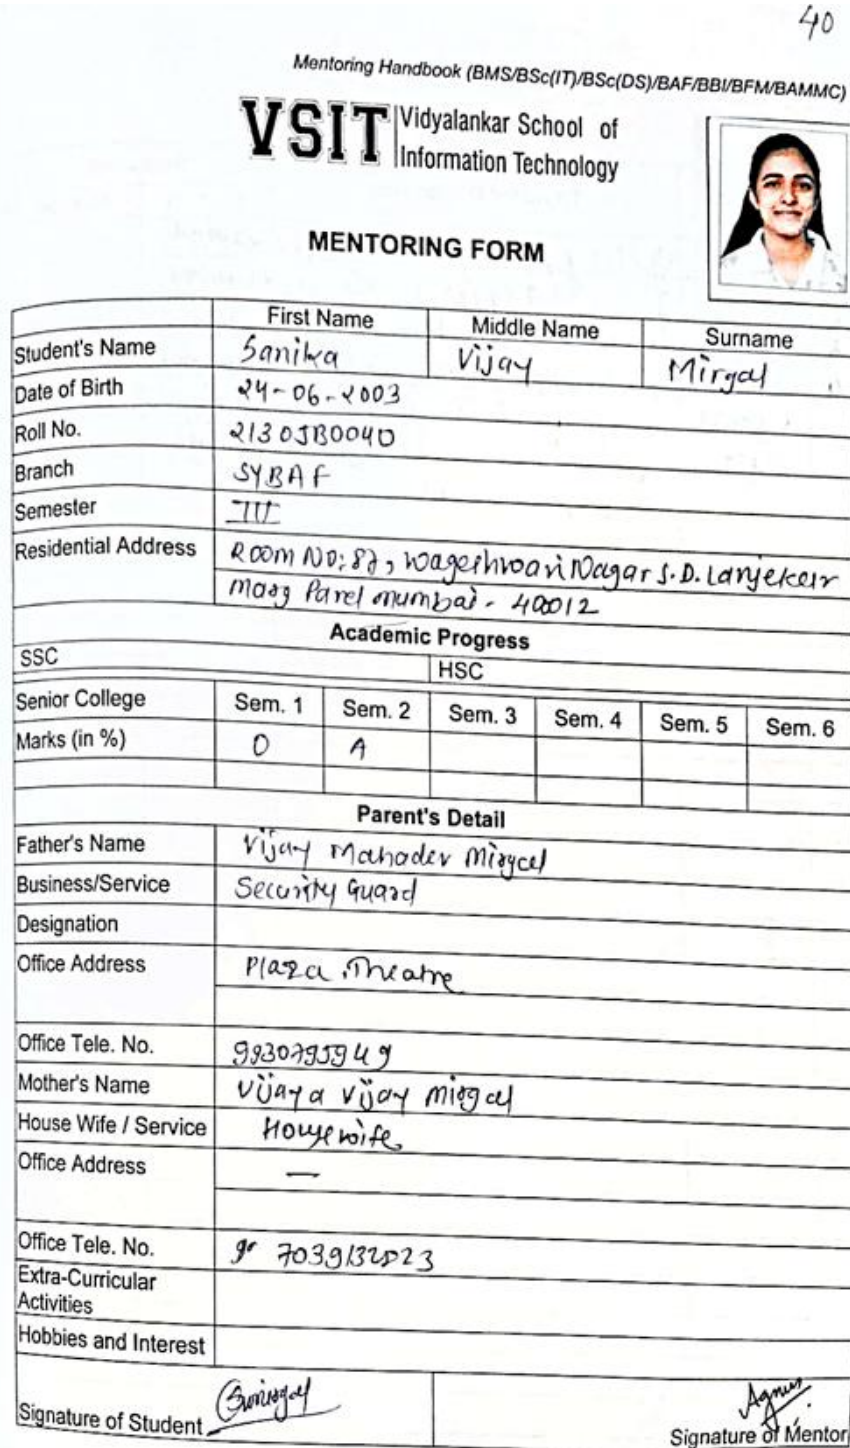 40
Mentoring Handbook (BMS/BSc(IT)/BSc(DS)/BAF/BBI/BFM/BAMMC)
VSIT Vidyalankar School of
Information Technology
MENTORING FORM
First Name Middle Name Surname
Student's Name Sanika Vijay Mirgal
Date of Birth 24-06-2003
Roll No. 21305B0040
Branch SYBAF
Semester III
Residential Address Room No: 87, Wageshwari Nagar S.D. Lanjekar
Marg Parel mumbai - 400012
Academic Progress
SSC HSC
Senior College Sem. 1 Sem. 2 Sem. 3 Sem. 4 Sem. 5 Sem. 6
Marks (in %) O A
Parent's Detail
Father's Name Vijay Mahadev Mirgal
Business/Service Security Guard
Designation
Office Address Plaza Theatre
Office Tele. No. 9930795949
Mother's Name Vijaya Vijay Mirgal
House Wife / Service Housewife
Office Address —
Office Tele. No.
Extra-Curricular
Activities
Hobbies and Interest
Signature of Student
Signature of Mentor